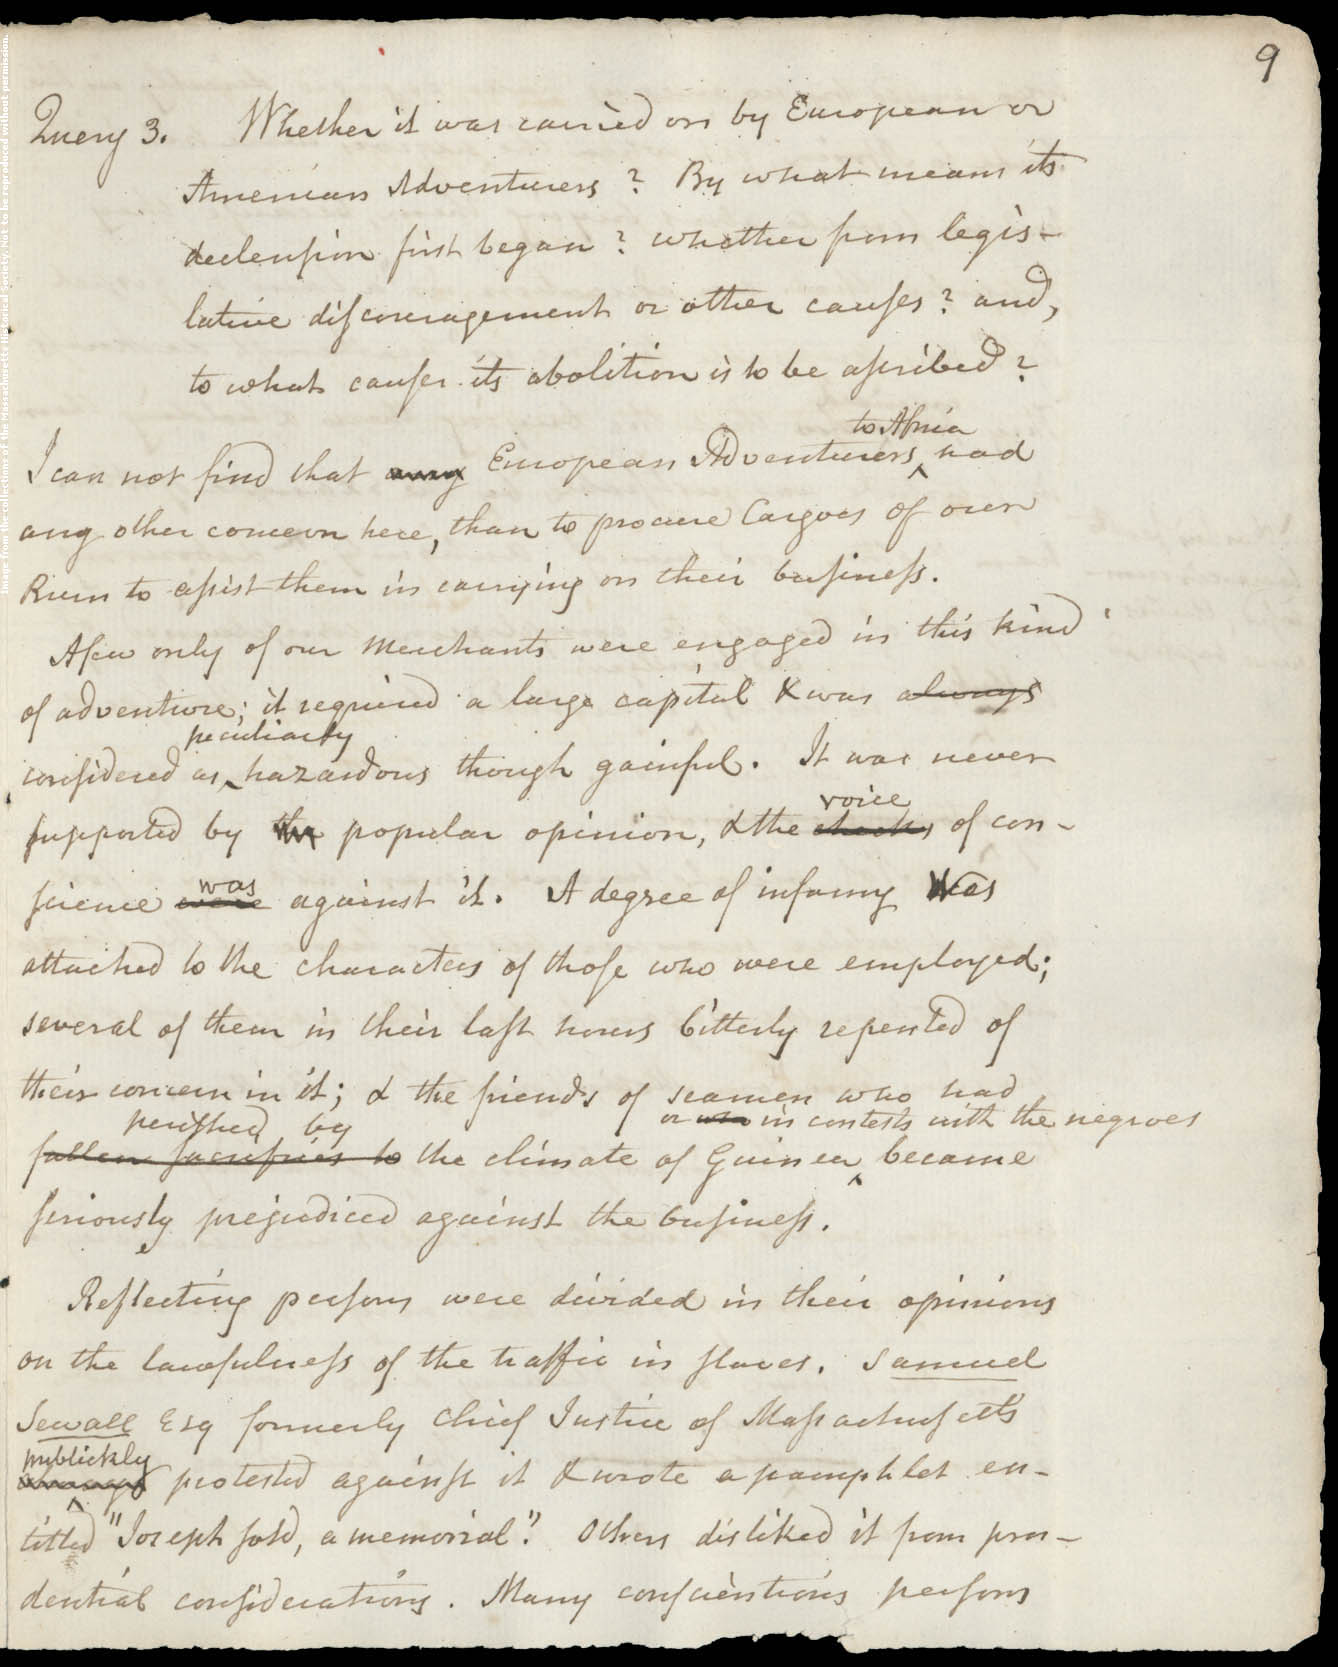 9
Query 3. Whether it was carried on by European or
American Adventurers? By what means its
declension first began? whether from legis-
lative discouragement or other causes? and,
to what causes its abolition is to be ascribed?
to Africa
I can not find that any European Adventurers ‸ had
any other concern here, than to procure Cargoes of our
Rum to assist them in carrying on their business.
A few only of our Merchants were engaged in this kind
of adventure; it required a large capital & was always
peculiarly
considered as ‸ hazardous though gainful. It was never
voice
supported by the popular opinion, & the checks of con-
was
science were against it. A degree of infamy was
attached to the characters of those who were employed;
several of them in their last hours bitterly repented of
their concern in it; & the friends of seamen who had
perished by or in contests with the negroes
fallen sacrifices to the climate of Guinea ‸ became
seriously prejudiced against the business.
Reflecting persons were divided in their opinions
on the lawfulness of the traffic in slaves. Samuel
Sewall Esq formerly chief Justice of Massachusetts
publickly
always protested against it & wrote a pamphlet en-
titled "Joseph sold, a memorial". Others disliked it from pru-
dential considerations. Many conscientious persons
Image from the collections of the Massachusetts Historical Society. Not to be reproduced without permission.